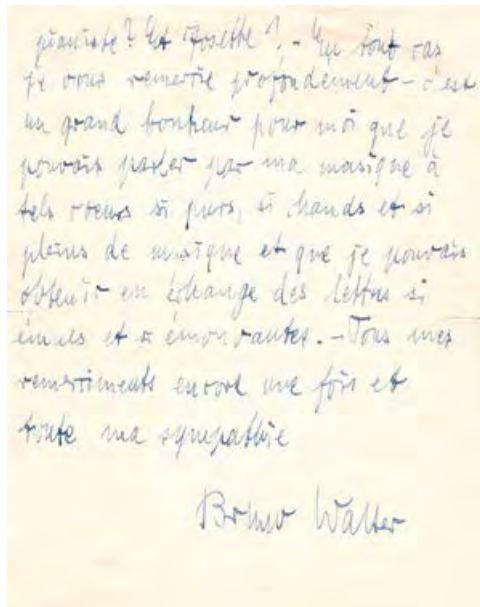 pianiste? Et Josette? - En tout cas
je vous remercie profondement - c'est
un grand bonheur pour moi que je
pouvais parler par ma musique à
tels coeurs si purs, si chauds et si
pleins de musique et que je pouvais
obtenir en échange des lettres si
émues et si émouvantes. - Tous mes
remerciments encore une fois et
toute ma sympathie
Bruno Walter